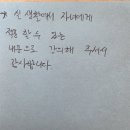 * 실 생활에서 자녀에게
적용 할 수 있는
내용으로 강의해 주셔서
감사합니다.